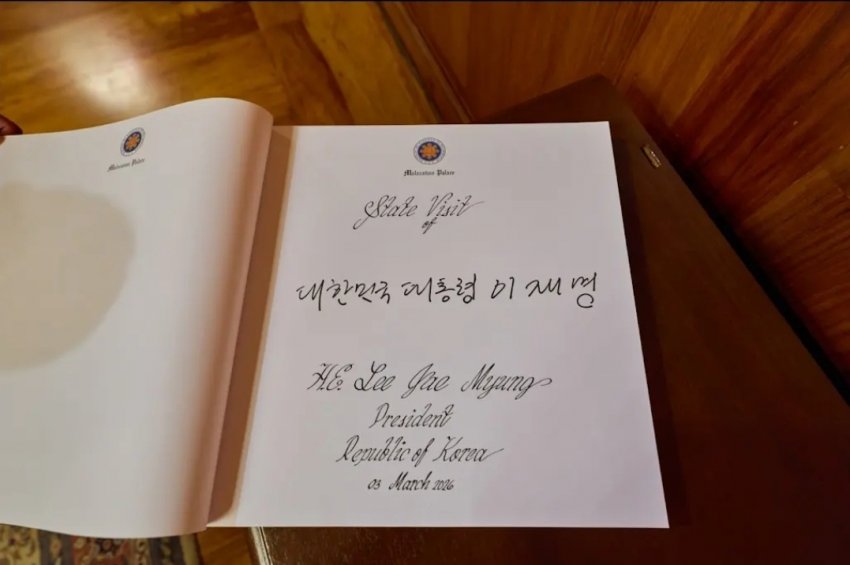 Malacañan Palace
Malacañan Palace
State Visit
of
대한민국 대통령 이재명
H.E. Lee Jae Myung
President
Republic of Korea
03 March 2026